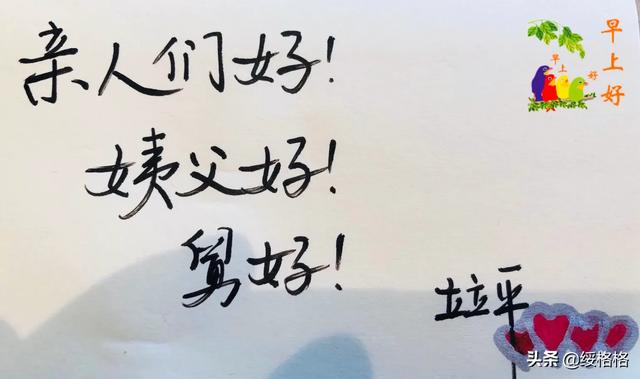 亲人们好!
姨父好!
舅好!
平
早上好
早上好
头条 @绥格格